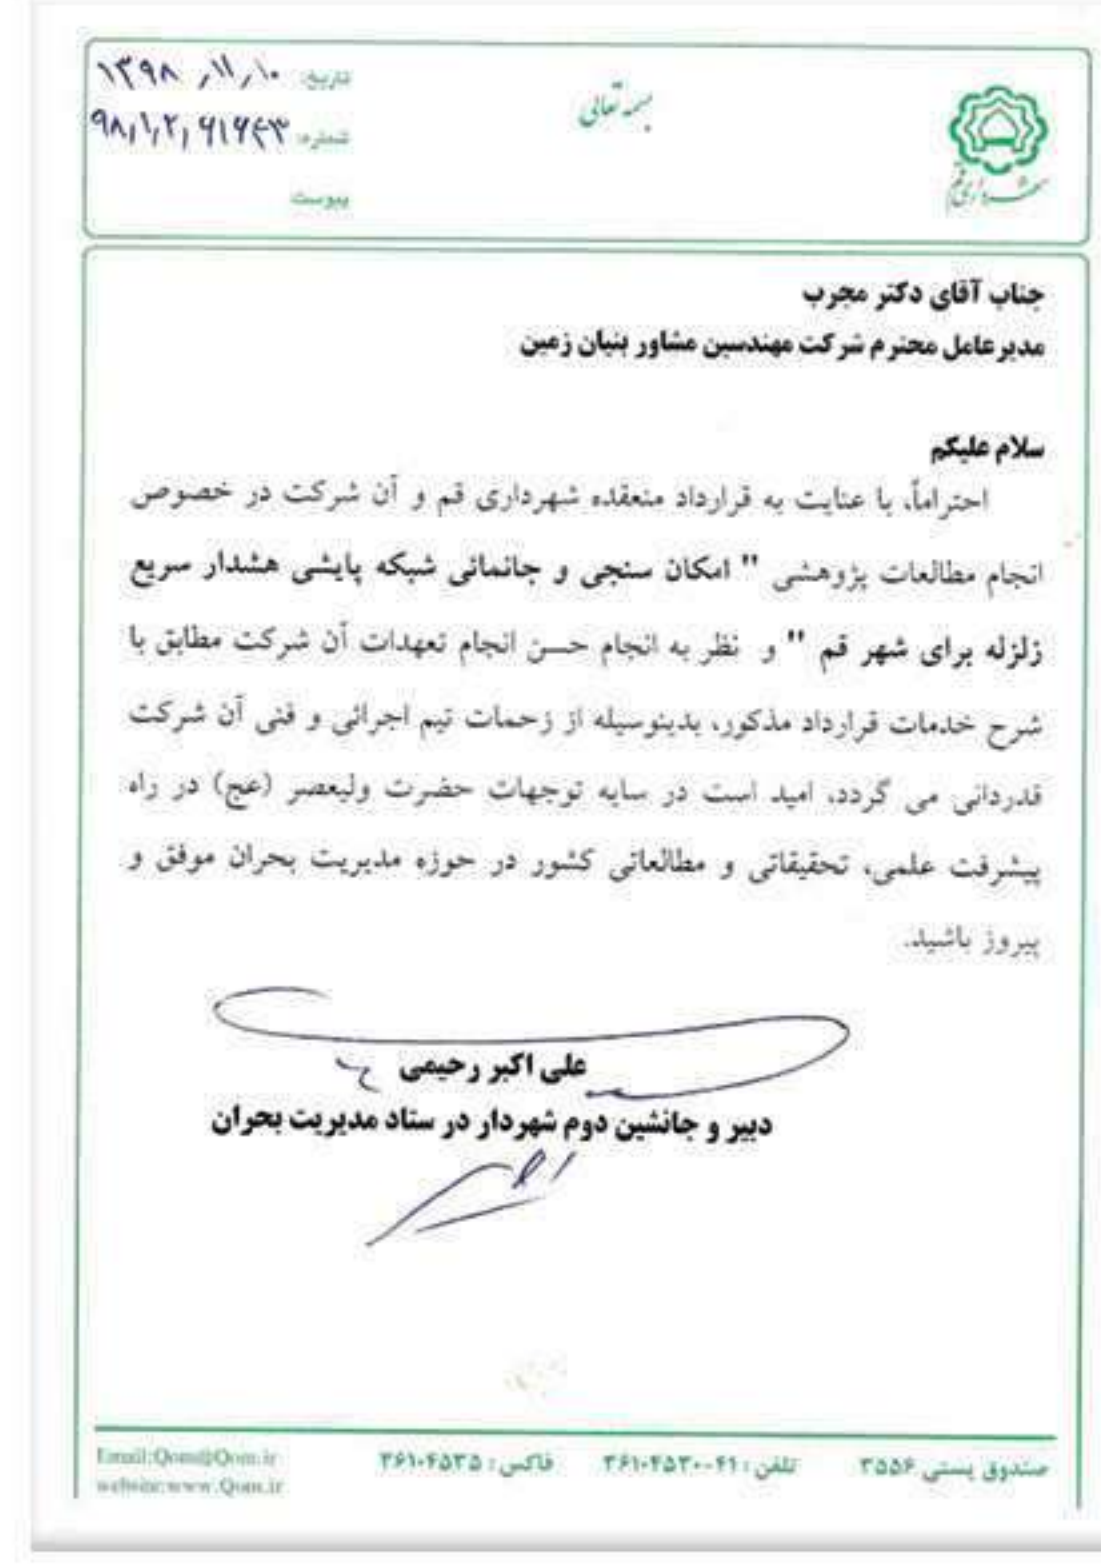 بسمه تعالی
شهرداری قم
تاریخ: ۱۳۹۸/۱۱/۱۰
شماره: ۹۸/۱/۲/۶۱۶۴۳
پیوست
جناب آقای دکتر مجرب
مدیرعامل محترم شرکت مهندسین مشاور بنیان زمین
سلام علیکم
احتراماً، با عنایت به قرارداد منعقده شهرداری قم و آن شرکت در خصوص
انجام مطالعات پژوهشی " امکان سنجی و جانمائی شبکه پایشی هشدار سریع
زلزله برای شهر قم " و نظر به انجام حسن انجام تعهدات آن شرکت مطابق با
شرح خدمات قرارداد مذکور، بدینوسیله از زحمات تیم اجرائی و فنی آن شرکت
قدردانی می گردد، امید است در سایه توجهات حضرت ولیعصر (عج) در راه
پیشرفت علمی، تحقیقاتی و مطالعاتی کشور در حوزه مدیریت بحران موفق و
پیروز باشید.
علی اکبر رحیمی
دبیر و جانشین دوم شهردار در ستاد مدیریت بحران
صندوق پستی ۳۵۵۶ تلفن : ۴۱-۳۶۱۰۴۵۳۰ فاکس : ۳۶۱۰۴۵۳۵
Email:Qom@Qom.ir
website:www.Qom.ir